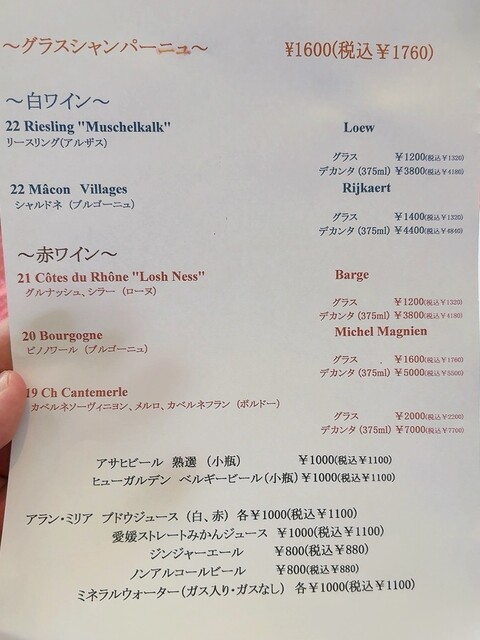 ～グラスシャンパーニュ～ ¥1600(税込￥1760)
～白ワイン～
22 Riesling "Muschelkalk" Loew
リースリング(アルザス)
グラス ￥1200(税込￥1320)
デカンタ (375ml) ￥3800(税込￥4180)
22 Mâcon Villages Rijkaert
シャルドネ (ブルゴーニュ)
グラス ￥1400(税込￥1320)
デカンタ (375ml) ￥4400(税込￥4840)
～赤ワイン～
21 Côtes du Rhône "Losh Ness" Barge
グルナッシュ、シラー (ローヌ)
グラス ￥1200(税込￥1320)
デカンタ (375ml) ￥3800(税込￥4180)
20 Bourgogne Michel Magnien
ピノノワール (ブルゴーニュ)
グラス ￥1600(税込￥1760)
デカンタ (375ml) ￥5000(税込￥5500)
19 Ch Cantemerle
カベルネソーヴィニヨン、メルロ、カベルネフラン (ボルドー)
グラス ￥2000(税込￥2200)
デカンタ (375ml) ￥7000(税込￥7700)
アサヒビール 熟選 (小瓶) ￥1000(税込￥1100)
ヒューガルデン ベルギービール(小瓶) ￥1000(税込￥1100)
アラン・ミリア ブドウジュース (白、赤) 各￥1000(税込￥1100)
愛媛ストレートみかんジュース ￥1000(税込￥1100)
ジンジャーエール ￥800(税込￥880)
ノンアルコールビール ￥800(税込￥880)
ミネラルウォーター(ガス入り・ガスなし) 各￥1000(税込￥1100)